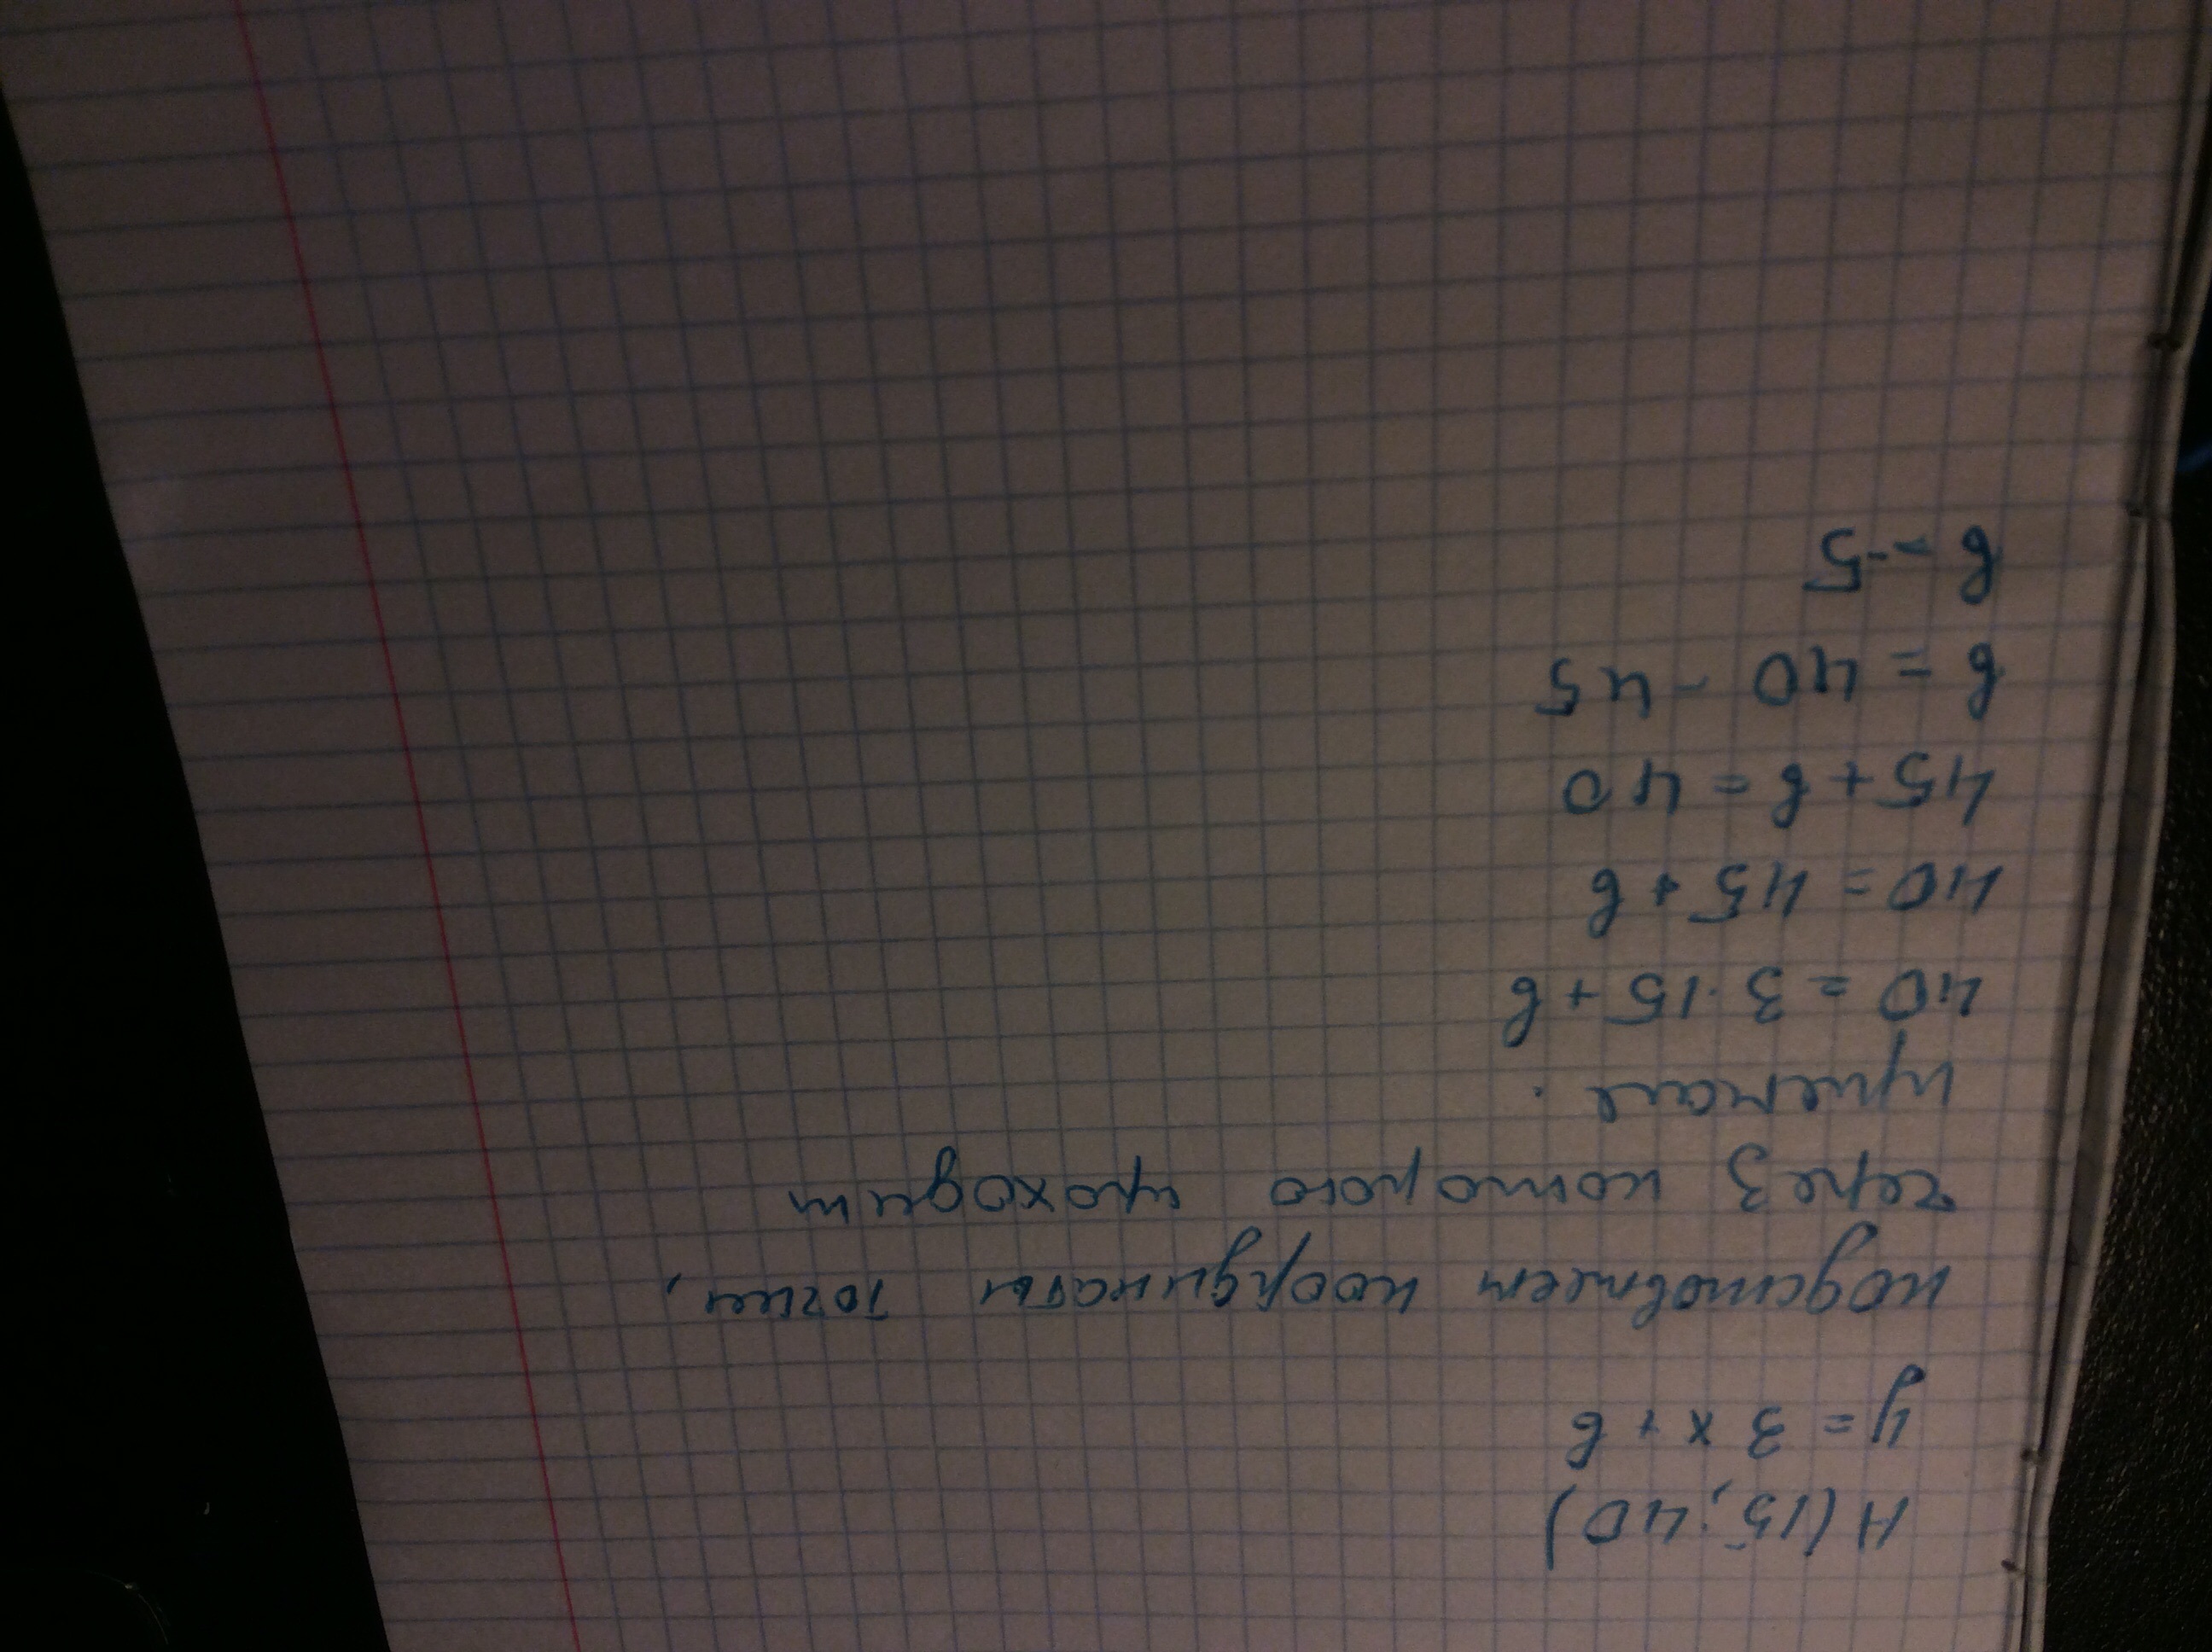 H(15; 40)
y = 3x + b
подставляем координаты точки,
через которого проходит
прямая.
40 = 3·15 + b
40 = 45 + b
45 + b = 40
b = 40 - 45
b = -5